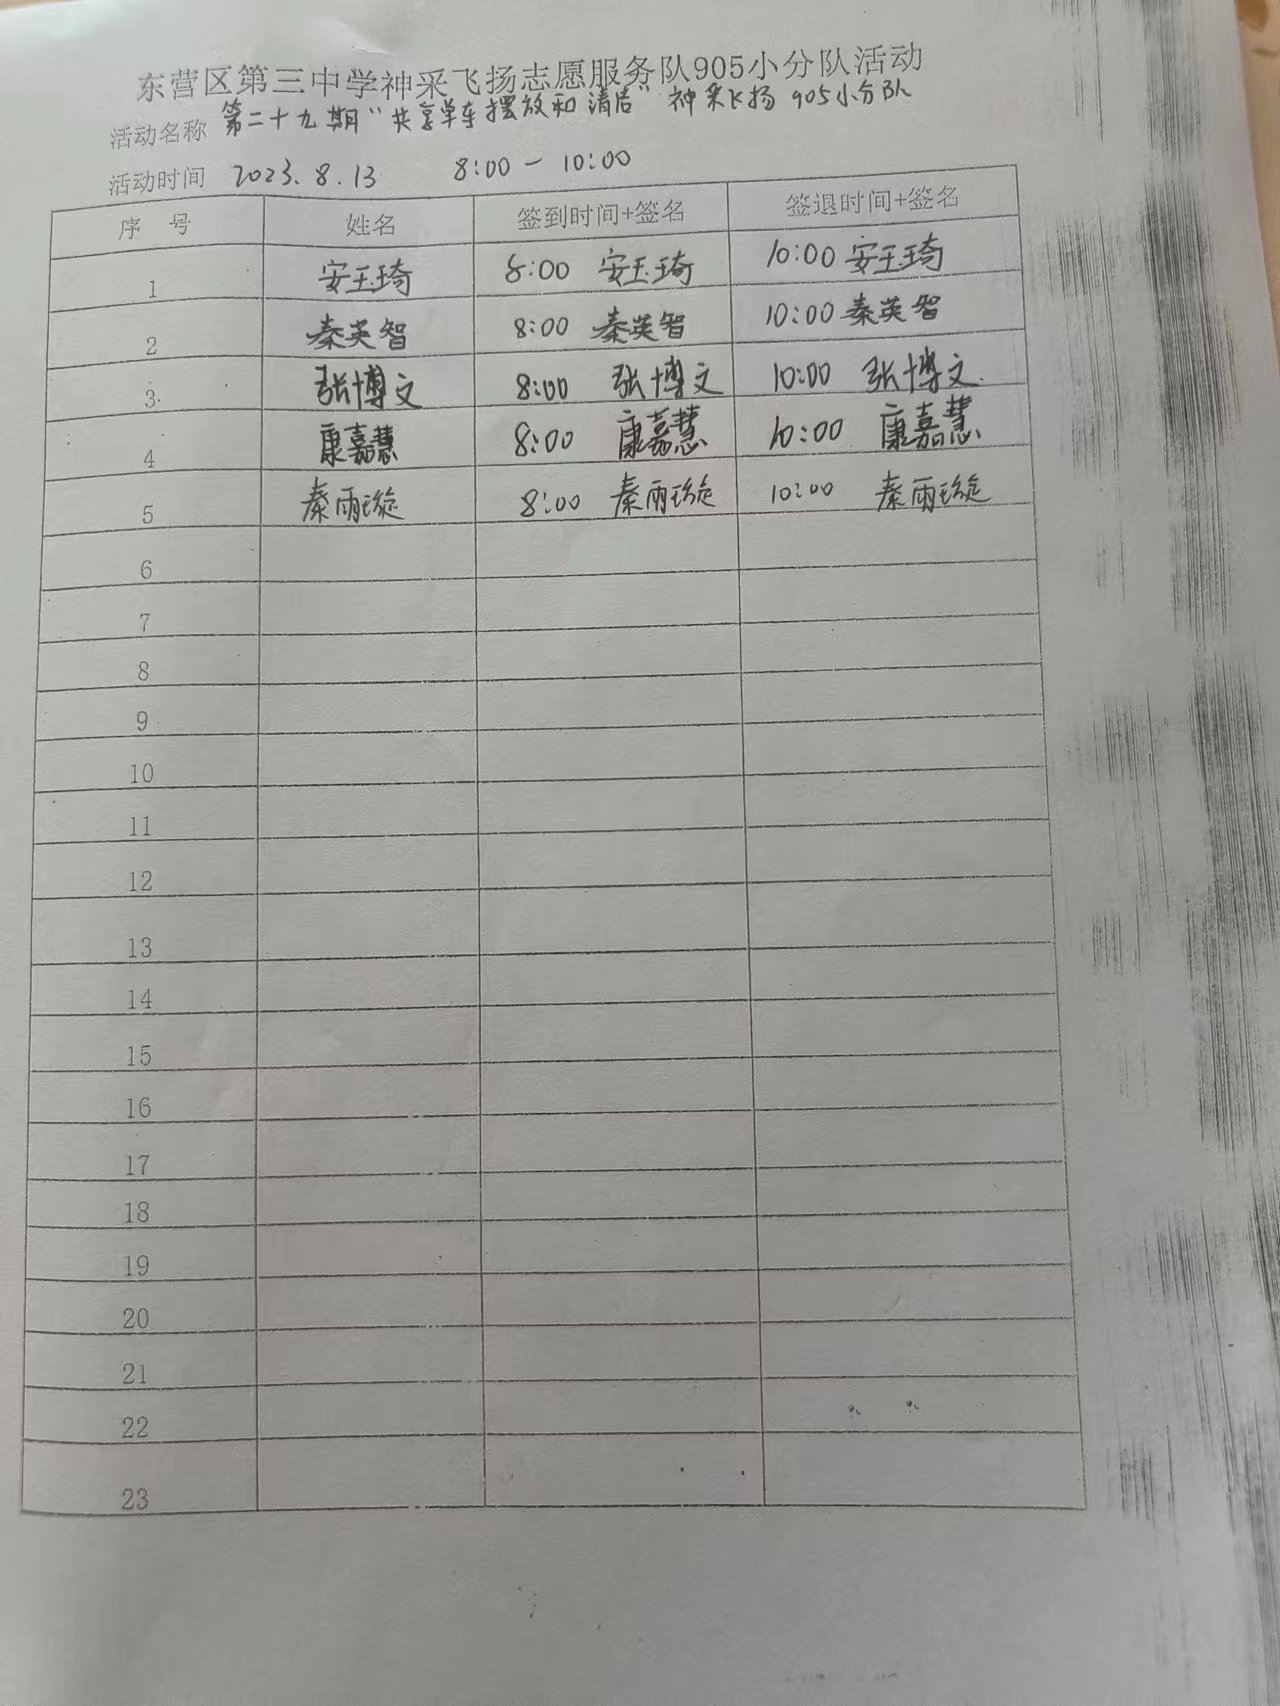 东营区第三中学神采飞扬志愿服务队905小分队活动
活动名称 第二十九期"共享单车摆放和清洁"神采飞扬905小分队
活动时间 2023.8.13 8:00-10:00
序 号 姓名 签到时间+签名 签退时间+签名
1 安玉琦 8:00 安玉琦 10:00 安玉琦
2 秦英智 8:00 秦英智 10:00 秦英智
3 张博文 8:00 张博文 10:00 张博文
4 康嘉慧 8:00 康嘉慧 10:00 康嘉慧
5 秦雨璇 8:00 秦雨璇 10:00 秦雨璇
6
7
8
9
10
11
12
13
14
15
16
17
18
19
20
21
22
23